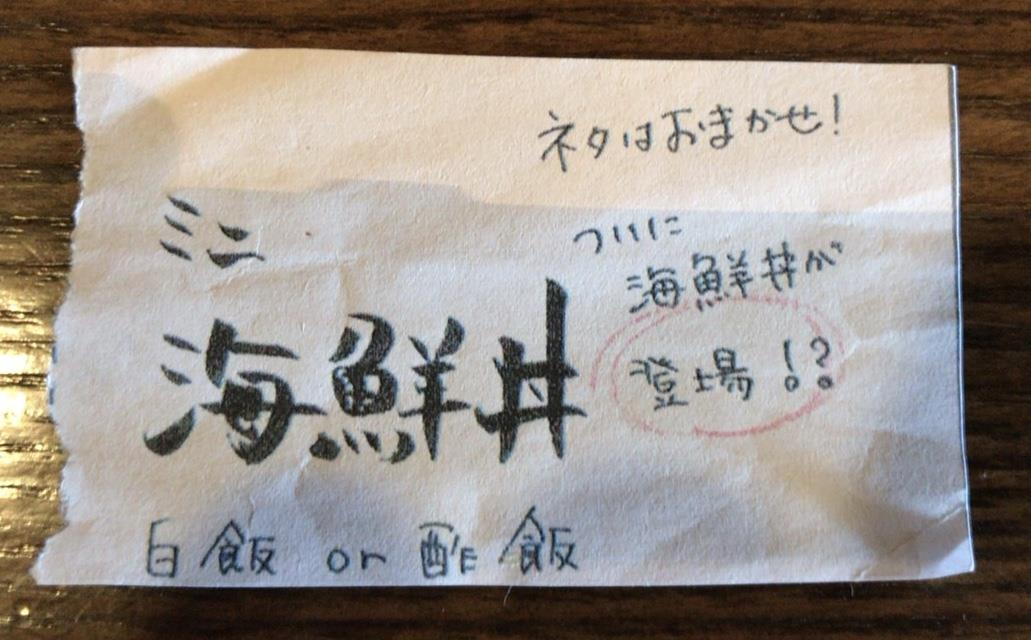 ネタはおまかせ!
ミニ
海鮮丼
ついに
海鮮丼が
登場!?
白飯 or 酢飯